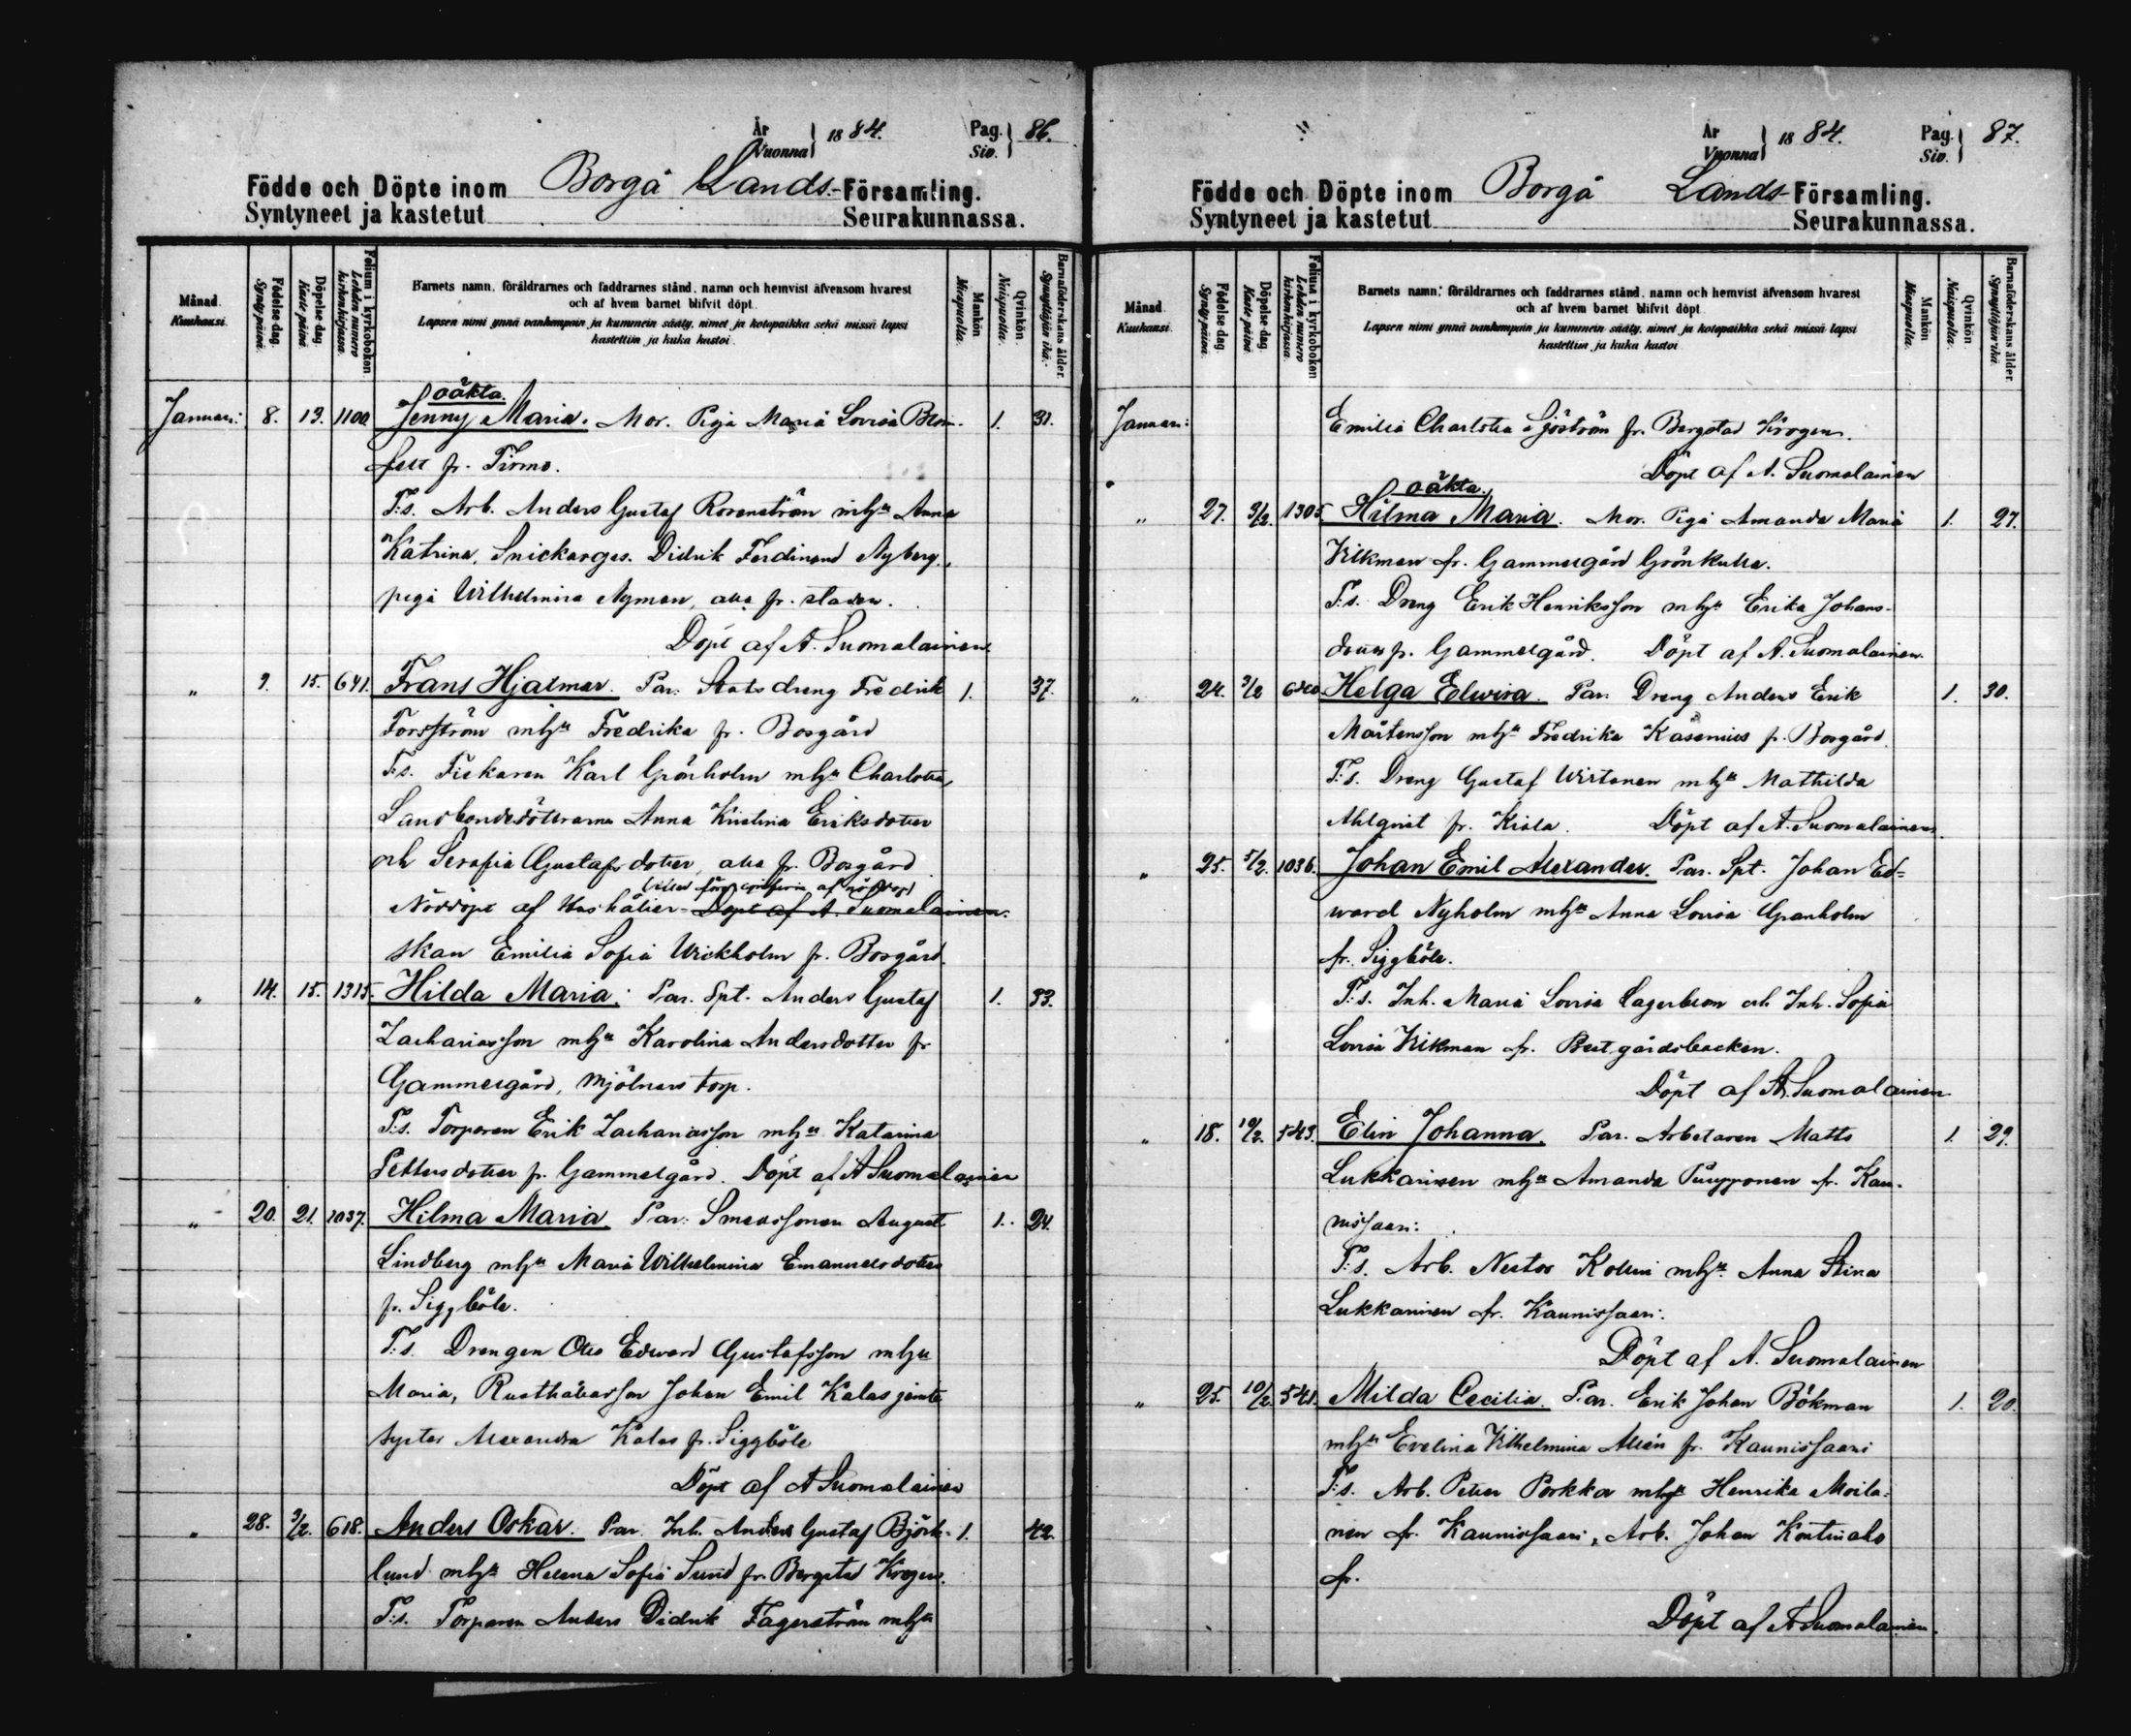 År
Vuonna 1884. Pag. Siv. 86.
Födde och Döpte inom Borgå Lands-Församling.
Syntyneet ja kastetut Seurakunnassa.
Månad. Kuukausi.
Födelse dag. Synty päivä.
Döpelse dag. Kaste päivä.
Folium i kyrkoboken Lehden numero kirkonkirjassa.
Barnets namn, föräldrarnes och faddrarnes stånd, namn och hemvist äfvensom hvarest
och af hvem barnet blifvit döpt.
Lapsen nimi ynnä vanhempain ja kummein sääty, nimet ja kotopaikka sekä missä lapsi
kastettiin ja kuka kastoi.
Mankön Miespuolta.
Qvinkön Naispuolta.
Barnaföderskans ålder. Synnyttäjän ikä.
oäkta.
Januari: 8. 13. 1100. Jenny Maria. Mor. Piga Maria Lovisa Blom- 1. 31.
felt fr. Tirmo.
T:s. Arb. Anders Gustaf Rosenström mhu Anna
Katrina, Snickarges. Didrik Ferdinand Nyberg,
piga Wilhelmina Nyman, alla fr. staden.
Döpt af A. Suomalainen.
" 9. 15. 641. Frans Hjalmar. Par. Statsdreng Fredrik 1. 37.
Forsström mhu Fredrika fr. Bosgård
T:s. Fiskaren Karl Grönholm mhu Charlotta,
Landbondedöttrarna Anna Kristina Eriksdotter
och Serafia Gustafsdotter, alla fr. Bosgård
Nöddöpt af Hushåller- Döpt af A. Suomalainen.
skan Emilia Sofia Wickholm fr. Bosgård.
" 14. 15. 1315. Hilda Maria. Par. Spt. Anders Gustaf 1. 33.
Zachariasson mhu Karolina Andersdotter fr
Gammelgård, Mjölnars torp.
T:s. Torparen Erik Zachariasson mhu Katarina
Pettersdotter fr. Gammelgård. Döpt af A Suomalainen
" 20. 21. 1037. Hilma Maria. Par. Smedssonen August 1. 24.
Lindberg mhu Maria Wilhelmina Emanuelsdotter
fr. Siggböle.
T:s. Drengen Otto Edward Gustafsson mhu
Maria, Rusthållarson Johan Emil Kalas jemte
syster Alexandra Kalas fr. Siggböle
Döpt af A Suomalainen
" 28. 3/2. 618. Anders Oskar. Par. Inh. Anders Gustaf Björk- 1. 42.
lund mhu Helena Sofia Sund fr. Bergstad Krogen.
T:s. Torparen Anders Didrik Fagerström mhu
År
Vuonna 1884. Pag. Siv. 87.
Födde och Döpte inom Borgå Lands-Församling.
Syntyneet ja kastetut Seurakunnassa.
Månad. Kuukausi.
Födelse dag. Synty päivä.
Döpelse dag. Kaste päivä.
Folium i kyrkoboken Lehden numero kirkonkirjassa.
Barnets namn, föräldrarnes och faddrarnes stånd, namn och hemvist äfvensom hvarest
och af hvem barnet blifvit döpt.
Lapsen nimi ynnä vanhempain ja kummein sääty, nimet ja kotopaikka sekä missä lapsi
kastettiin ja kuka kastoi
Mankön Miespuolta.
Qvinkön Naispuolta.
Barnaföderskans ålder. Synnyttäjän ikä.
Januari: Emilia Charlotta Sjöström fr. Bergstad Krogen.
Döpt af A. Suomalainen
oäkta.
" 27. 3/2. 1305. Hilma Maria. Mor. Piga Amanda Maria 1. 27.
Vikman fr. Gammelgård Grönkulla.
T:s. Dreng Erik Henriksson mhu Erika Johans-
dotter fr. Gammelgård. Döpt af A. Suomalainen.
" 24. 3/2 640 Helga Elvira. Par. Dreng Anders Erik 1. 30.
Mårtensson mhu Fredrika Kasenius fr. Bosgård.
T:s. Dreng Gustaf Wirtanen mhu Mathilda
Ahlqvist fr. Kiala. Döpt af A. Suomalainen.
" 25. 5/2. 1036. Johan Emil Alexander. Par. Spt. Johan Ed-
ward Nyholm mhu Anna Lovisa Granholm
fr. Siggböle.
T:s. Inh. Maria Lovisa Lagerblom och Inh. Sofia
Lovisa Vikman fr. Prestgårdsbacken.
Döpt af A. Suomalainen
" 18. 10/2. 543. Elin Johanna. Par. Arbetaren Matts 1. 29.
Lukkarinen mhu Amanda Puupponen fr. Kau-
nissaari.
T:s. Arb. Nestor Kollin mhu Anna Stina
Lukkarinen fr. Kaunissaari.
Döpt af A. Suomalainen
" 25. 10/2. 541. Milda Cecilia. Par. Erik Johan Bökman 1. 20.
mhu Evelina Vilhelmina Allén fr. Kaunissaari
T:s. Arb. Petter Porkka mhu Henrika Moila-
nen fr. Kaunissaari, Arb. Johan Kontinaho
fr.
Döpt af A Suomalainen.